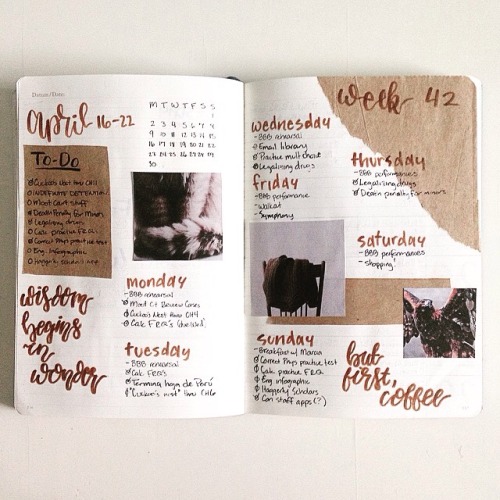 Datum/Date:
april 16-22
M T W T F S S
1
2 3 4 5 6 7 8
9 10 11 12 13 14 15
16 17 18 19 20 21 22
23 24 25 26 27 28 29
30
To-Do
Cuckoo's Nest thru CH4
INDEFINITE DETENTION
Moot Court stuff
Death Penalty for Minors
Legalizing drugs
Calc practice FRQ
Correct Phys practice test
Eng. Infographic
Haggerty Scholars
wisdom
begins
in
wonder
monday
-BBB rehearsal
Moot Ct Review Cases
Cuckoo's Nest thru CH4
Calc FRQ's
tuesday
-BBB rehearsal
Calc FRQ's
Termina hoja de Perú
"Cuckoo's nest" thru CH6
week 42
wednesday
-BBB rehearsal
Email library
Practice mult choice
Legalizing drugs
thursday
-BBB performances
Legalizing drugs
Death penalty for minors
friday
-BBB performance
-Walkat
-Symphony
saturday
-BBB performances
-shopping!
sunday
-Breakfast w/ Marcia
Correct Phys practice test
Calc practice FRQ
Eng infographic
Haggerty Scholars
Con staff apps (?)
but
first,
coffee